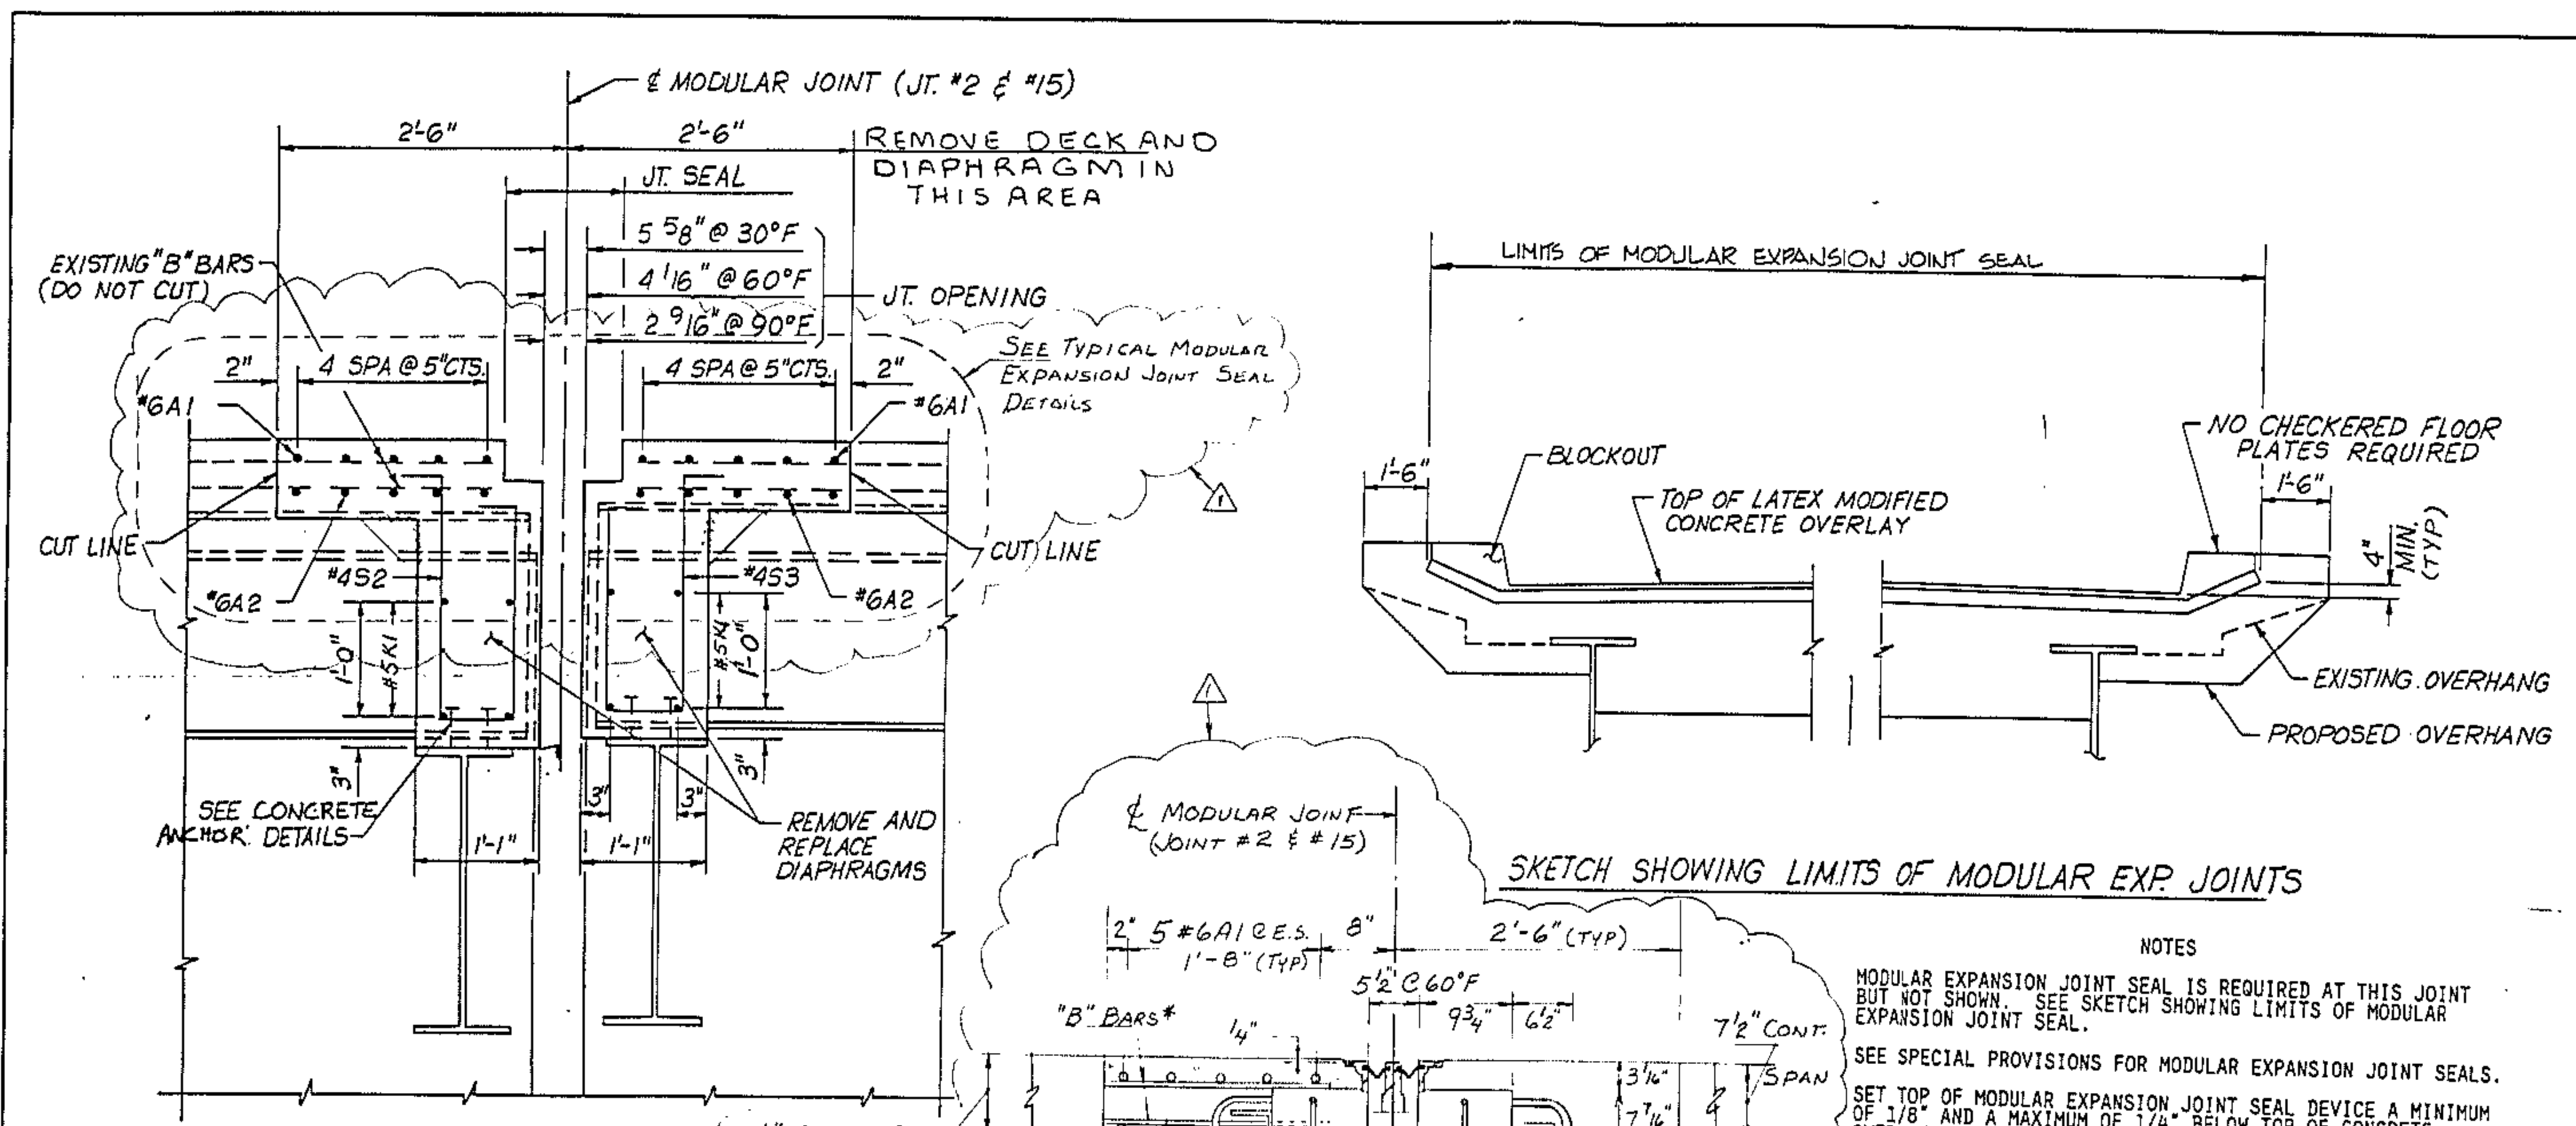 ℄ MODULAR JOINT (JT. #2 & #15)
2'-6"
2'-6"
REMOVE DECK AND
DIAPHRAGM IN
THIS AREA
JT. SEAL
5 5/8" @ 30°F
4 1/16" @ 60°F
2 9/16" @ 90°F
JT. OPENING
EXISTING "B" BARS
(DO NOT CUT)
SEE TYPICAL MODULAR
EXPANSION JOINT SEAL
DETAILS
2"
4 SPA @ 5" CTS.
4 SPA @ 5" CTS.
2"
#6A1
#6A1
1
CUT LINE
CUT LINE
#4S2
#4S3
#6A2
#6A2
1'-0"
#5K1
#5K1
1'-0"
3"
3"
3"
3"
SEE CONCRETE
ANCHOR DETAILS
1'-1"
1'-1"
REMOVE AND
REPLACE
DIAPHRAGMS
LIMITS OF MODULAR EXPANSION JOINT SEAL
NO CHECKERED FLOOR
PLATES REQUIRED
1'-6"
BLOCKOUT
1'-6"
TOP OF LATEX MODIFIED
CONCRETE OVERLAY
4"
MIN.
(TYP)
EXISTING OVERHANG
PROPOSED OVERHANG
SKETCH SHOWING LIMITS OF MODULAR EXP. JOINTS
1
℄ MODULAR JOINT
(JOINT #2 & #15)
2" 5 #6A1 @ E.S. 8" 2'-6" (TYP)
1'-8" (TYP)
5 1/2" @ 60°F
"B" BARS*
1/4"
9 3/4" 6 1/2"
7 1/2" CONT.
SPAN
3 1/16"
7 7/16"
NOTES
MODULAR EXPANSION JOINT SEAL IS REQUIRED AT THIS JOINT
BUT NOT SHOWN. SEE SKETCH SHOWING LIMITS OF MODULAR
EXPANSION JOINT SEAL.
SEE SPECIAL PROVISIONS FOR MODULAR EXPANSION JOINT SEALS.
SET TOP OF MODULAR EXPANSION JOINT SEAL DEVICE A MINIMUM
OF 1/8" AND A MAXIMUM OF 1/4" BELOW TOP OF CONCRETE